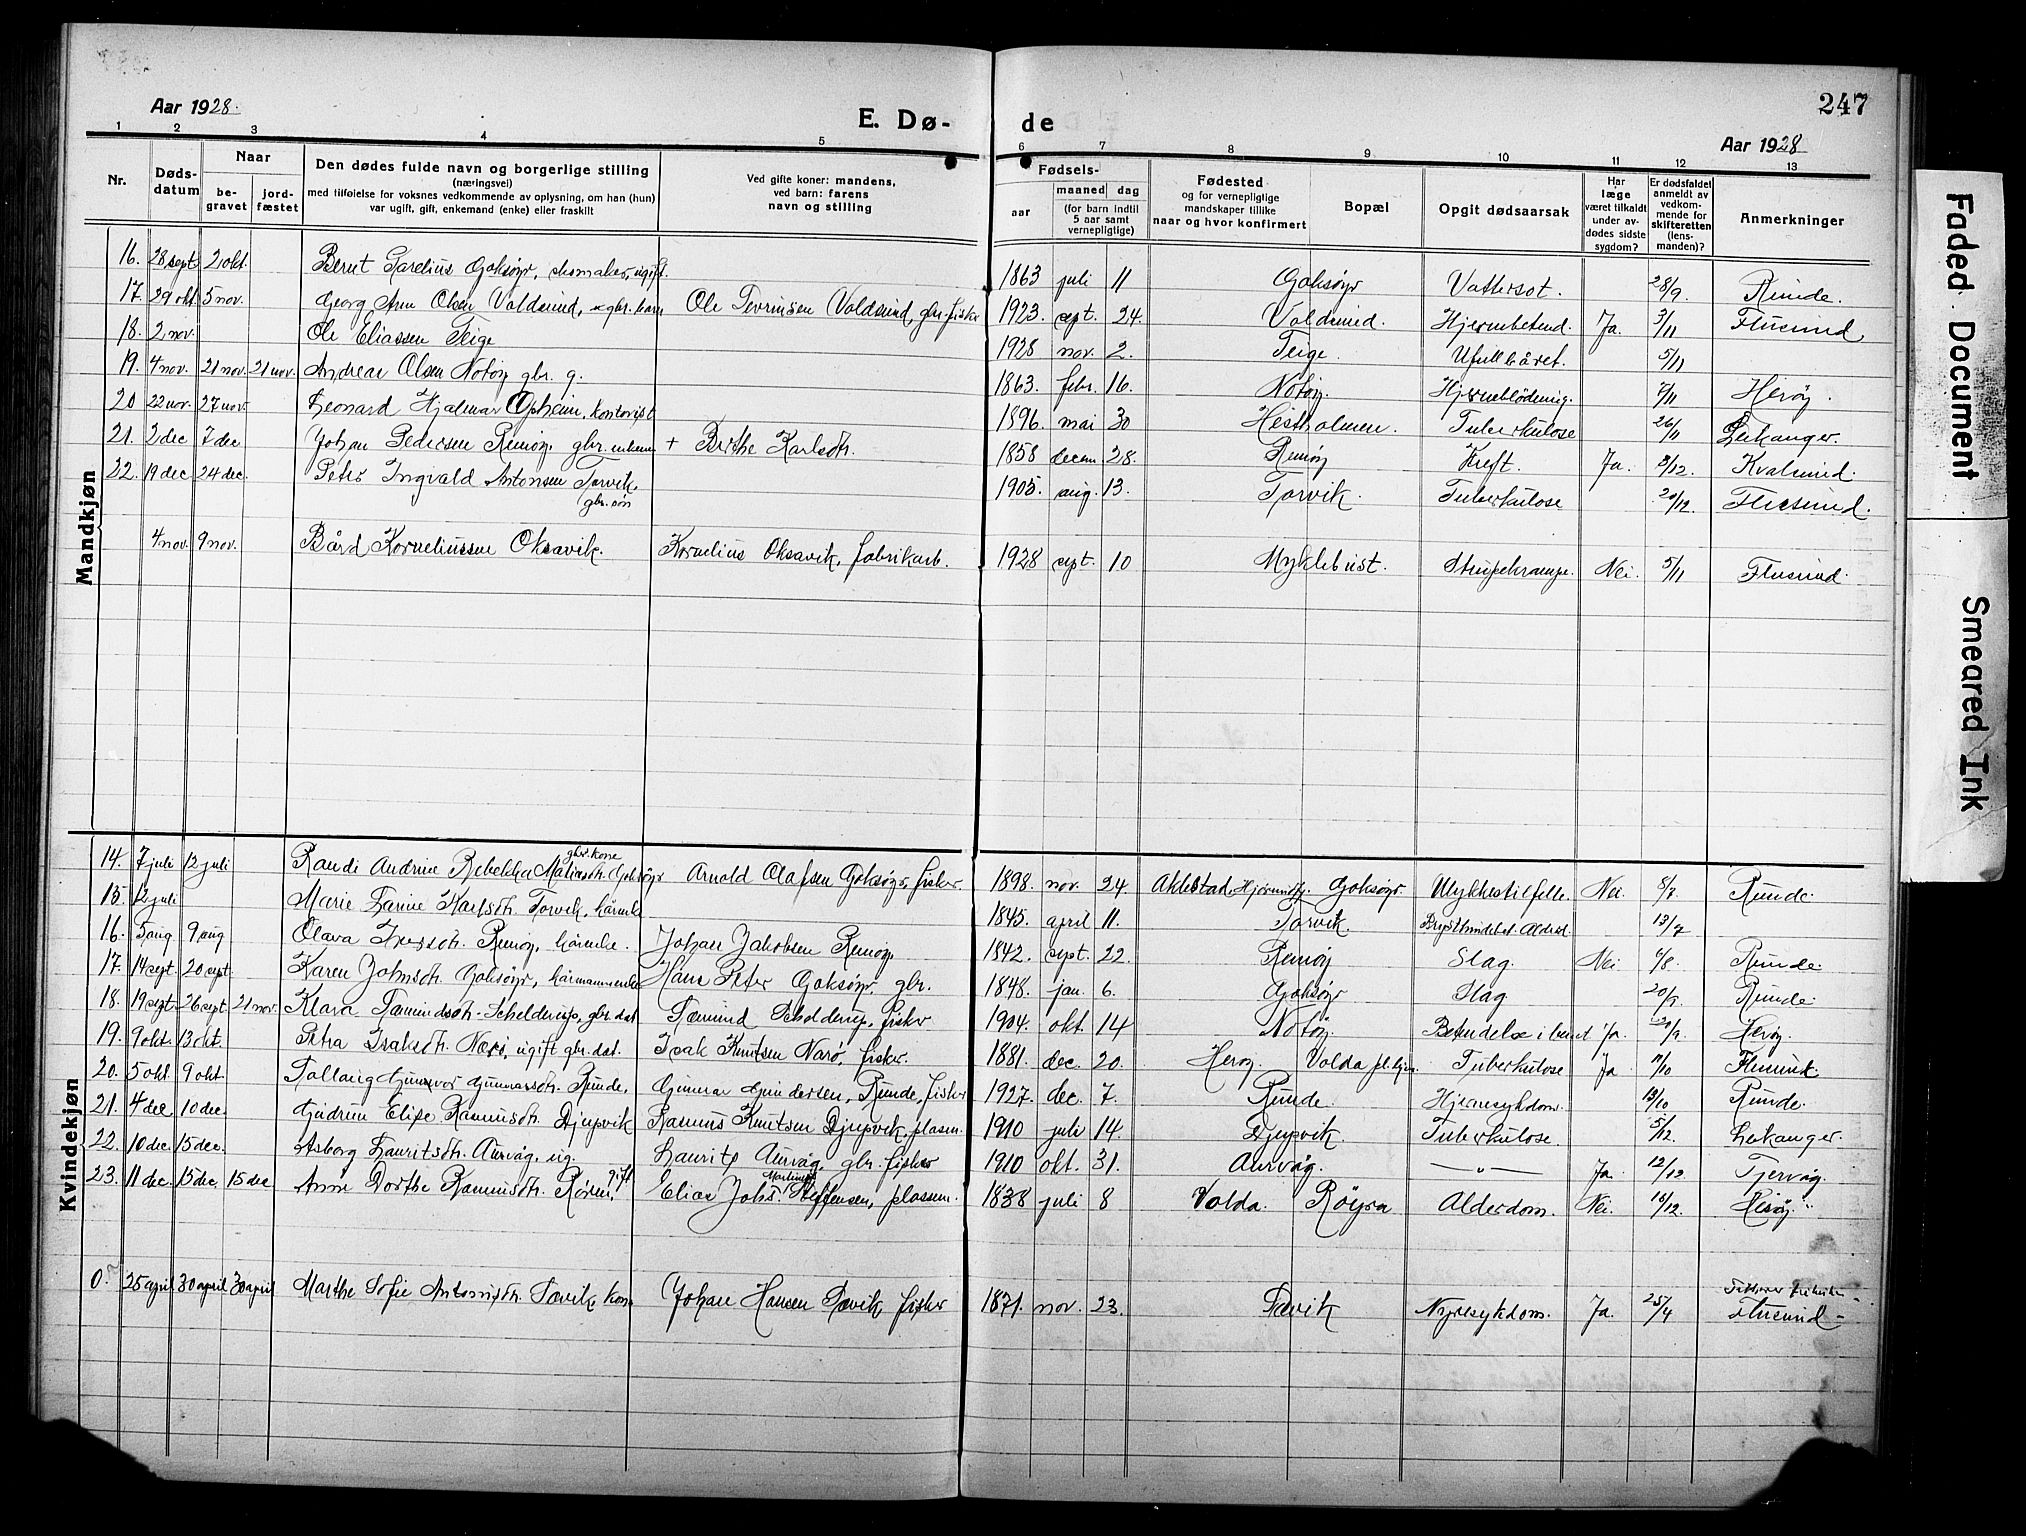 247
Aar 1928.
E. Dø- de
Aar 1928
1 2 3 4 5 6 7 8 9 10 11 12 13
Nr. Døds-datum Naar be-gravet jord-fæstet Den dødes fulde navn og borgerlige stilling (næringsvei) med tilføielse for voksnes vedkommende av oplysning, om han (hun) var ugift, gift, enkemand (enke) eller fraskilt Ved gifte koner: mandens, ved barn: farens navn og stilling Fødsels- aar maaned dag (for barn indtil 5 aar samt vernepligtige) Fødested og for vernepligtige mandskaper tillike naar og hvor konfirmert Bopæl Opgit dødsaarsak Har læge været tilkaldt under av-dødes sidste sygdom? Er dødsfaldet anmeldt av vedkom-mende for skifteretten (lens-manden)? Anmerkninger
Mandkjøn
16. 28 sept 2 okt. Bernt Karelius Goksöyr, skomaker, ugift. 1863 juli 11 Goksöyr Vattersot. 28/9. Runde.
17. 29 okt. 5 nov. Georg Olsen Voldsund, gbr. barn Ole Voldsund, gbr. fisker 1923. sept. 24. Voldsund. Hjernebetend. Ja. 3/11 Flusund
18. 2 nov. Ole Eliassen Teige 1928 nov. 2. Teige. Ufullbåret. 5/11
19. 4 nov. 21 nov. 21 nov. Andreas Olsen Notöy gbr. g. 1863. febr. 16. Notöy. Hjerneblödning. 6/11 Heröy.
20 22 nov. 27 nov. Leonard Hjalmar Opheim, kontorist 1896. mai 30 Hestholmen. Tuberkulose 26/11 Leikanger.
21. 2 dec 7 dec Johan Pedersen Remöy gbr. enkem. + Berthe Karlsdtr. 1858 decem. 28. Remöy Kreft. Ja. 3/12. Kvalsund.
22. 19 dec 24 dec. Peter Ingvald Antonsen Torvik. gbr. sön 1905. aug. 13. Torvik. Tuberkulose 20/12. Flusund.
4 nov. 9 nov. Bård Korneliussen Oksavik. Kornelius Oksavik, fabrikarb. 1928 sept. 10 Myklebust. Strupekrampe. Nei. 5/11 Flusund.
Kvindekjøn
14. 7 juli 12 juli Randi Andrine Rebekka Goksöyr gbr. kone Arnold Olafsen Goksöyr, fisker. 1898. nov. 24. Aklestad, Hjörundfj. Goksöyr. Ulykkestilfelle. Nei. 8/7. Runde.
15. 12 juli Marie Karlsdtr. Torvik, kårenke 1845. april 11. Torvik. 13/7
16. 5 aug 9 aug Olava Iversdtr. Remöy, kårenke. Johan Jakobsen Remöy. 1842. sept. 22. Remöy Slag. Nei 6/8. Runde.
17. 14 sept. 20 sept. Karen Johnsdtr. Goksöyr, Hans Peter Goksöyr, gbr. 1848. jan. 6. Goksöyr Slag. 20/9. Runde.
18. 19 sept. 26 sept 21 nov. Klara Schelderup, gbr. dat. Schelderup, fisker 1904. okt 14 Notöy. Betendelse i Ja. 20/9. Heröy.
19. 9 okt. 13 okt. Petra Isaksdtr. Nærö, ugift gbr. dat. Isak Knutsen Narö, fisker. 1881. dec. 20. Heröy Volda Tuberkulose Ja 11/10 Flusund.
20. 5 okt. 9 okt. Gunvor Gunnarsdtr. Runde. Gunnar Gundersen, Runde, fisker 1927. dec. 7. Runde. Hjernesykdom. 13/10 Runde.
21. 4 dec 10 dec. Gudrun Elise Rasmusdtr. Djupvik Rasmus Knutsen Djupvik, plasm. 1910 juli 14. Djupvik. Tuberkulose. 5/12. Leikanger.
22. 10 dec. 15 dec. Asborg Lauritsdtr. Aurvåg, ug. Laurits Aurvåg, gbr. fisker 1910 okt. 31. Aurvåg. — " — Ja. 12/12 Tjervåg.
23. 11 dec. 15 dec. 15 dec Anne Dorthe Rasmusdtr. gift Elias Johs. Martinus Steffensen, plassm. 1838 juli 8 Volda. Röyra Alderdom. Nei. 16/12. Heröy.
0. 25 april 30 april 30 april Marthe Sofie Antonsdtr. Tævik, kone Johan Hansen Tævik, fisker 1871. nov. 23. Tævik Nyresykdom. Ja. 25/4 Flusund
Faded Document
Smeared Ink